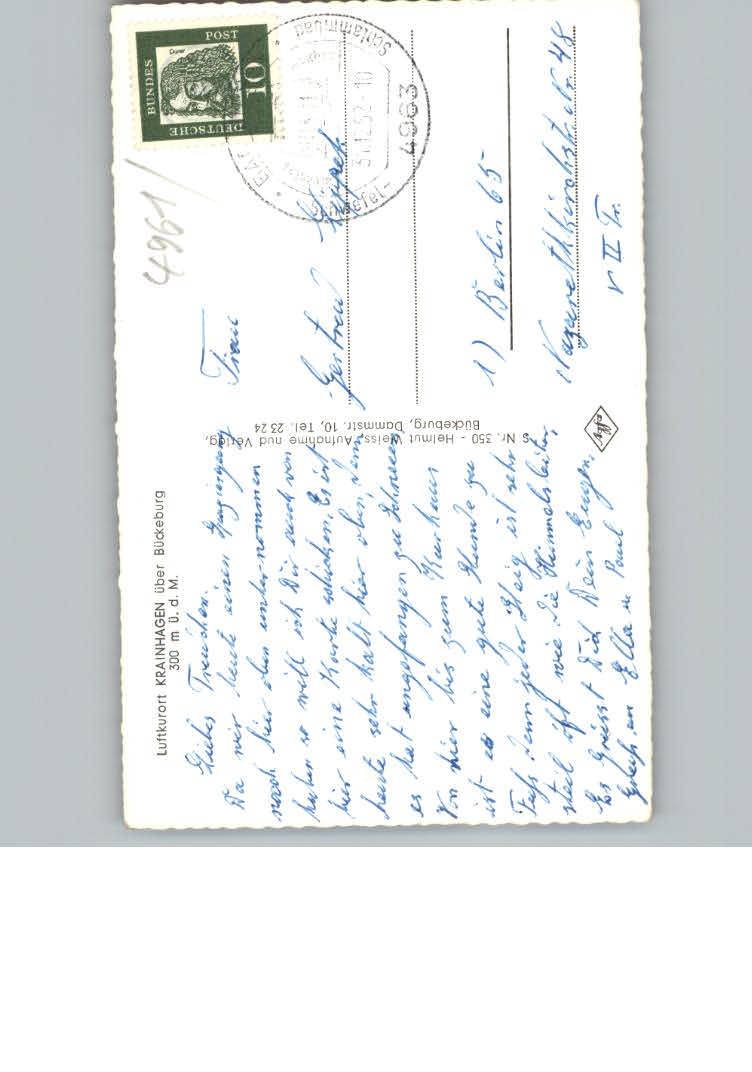 Luftkurort KRAINHAGEN über Bückeburg
300 m ü. d. M.
Liebes Treuchen.
Da wir heute einen Spaziergang
nach hier oben unternommen
haben so will ich Dir auch von
hier eine Karte schicken. Es ist
heute sehr kalt hier oben, denn
es hat angefangen zu schneien
Von hier bis zum Kurhaus
ist es eine gute Stunde zu
Fuß denn jeder Steig ist sehr
steil oft wie die Himmelsleiter,
Es Grüsst Dich Dein Eugen,
Gruß an Ella u Paul
S Nr. 350 - Helmut Weiss, Aufnahme nud Verlag,
Bückeburg, Dammstr. 10, Tel. 23 24
DEUTSCHE
BUNDES
POST
Dürer
10
4963
Schlammbad
31.12.62-10
4961/
Frau
Gertrud
1) Berlin 65
Nazarethkirchstr. Nr. 48
v II Tr.